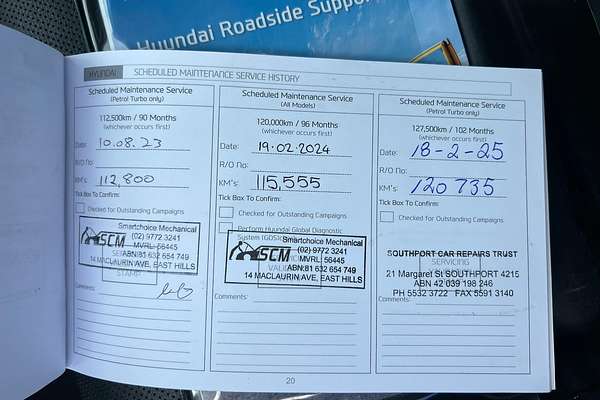 Hyundai Roadside Support
HYUNDAI
SCHEDULED MAINTENANCE SERVICE HISTORY
Scheduled Maintenance Service
(Petrol Turbo only)
112,500km / 90 Months
(whichever occurs first)
Date: 10.08.23
R/O No:
KM's: 112,800
Tick Box To Confirm:
Checked for Outstanding Campaigns
Smartchoice Mechanical
(02) 9772 3241
SCM
MVRL: 56445
ABN:81 632 654 749
14 MACLAURIN AVE, EAST HILLS
STAMP
Comments:
Scheduled Maintenance Service
(All Models)
120,000km / 96 Months
(whichever occurs first)
Date: 19.02.2024
R/O No:
KM's: 115,555
Tick Box To Confirm:
Checked for Outstanding Campaigns
Perform Hyundai Global Diagnostic
System (GDS)
Smartchoice Mechanical
(02) 9772 3241
SCM
MVRL: 56445
ABN:81 632 654 749
14 MACLAURIN AVE, EAST HILLS
Comments:
Scheduled Maintenance Service
(Petrol Turbo only)
127,500km / 102 Months
(whichever occurs first)
Date: 18-2-25
R/O No:
KM's: 120 735
Tick Box To Confirm:
Checked for Outstanding Campaigns
SOUTHPORT CAR REPAIRS TRUST
SERVICING
21 Margaret St SOUTHPORT 4215
ABN 42 039 198 246
PH 5532 3722 FAX 5591 3140
Comments:
20